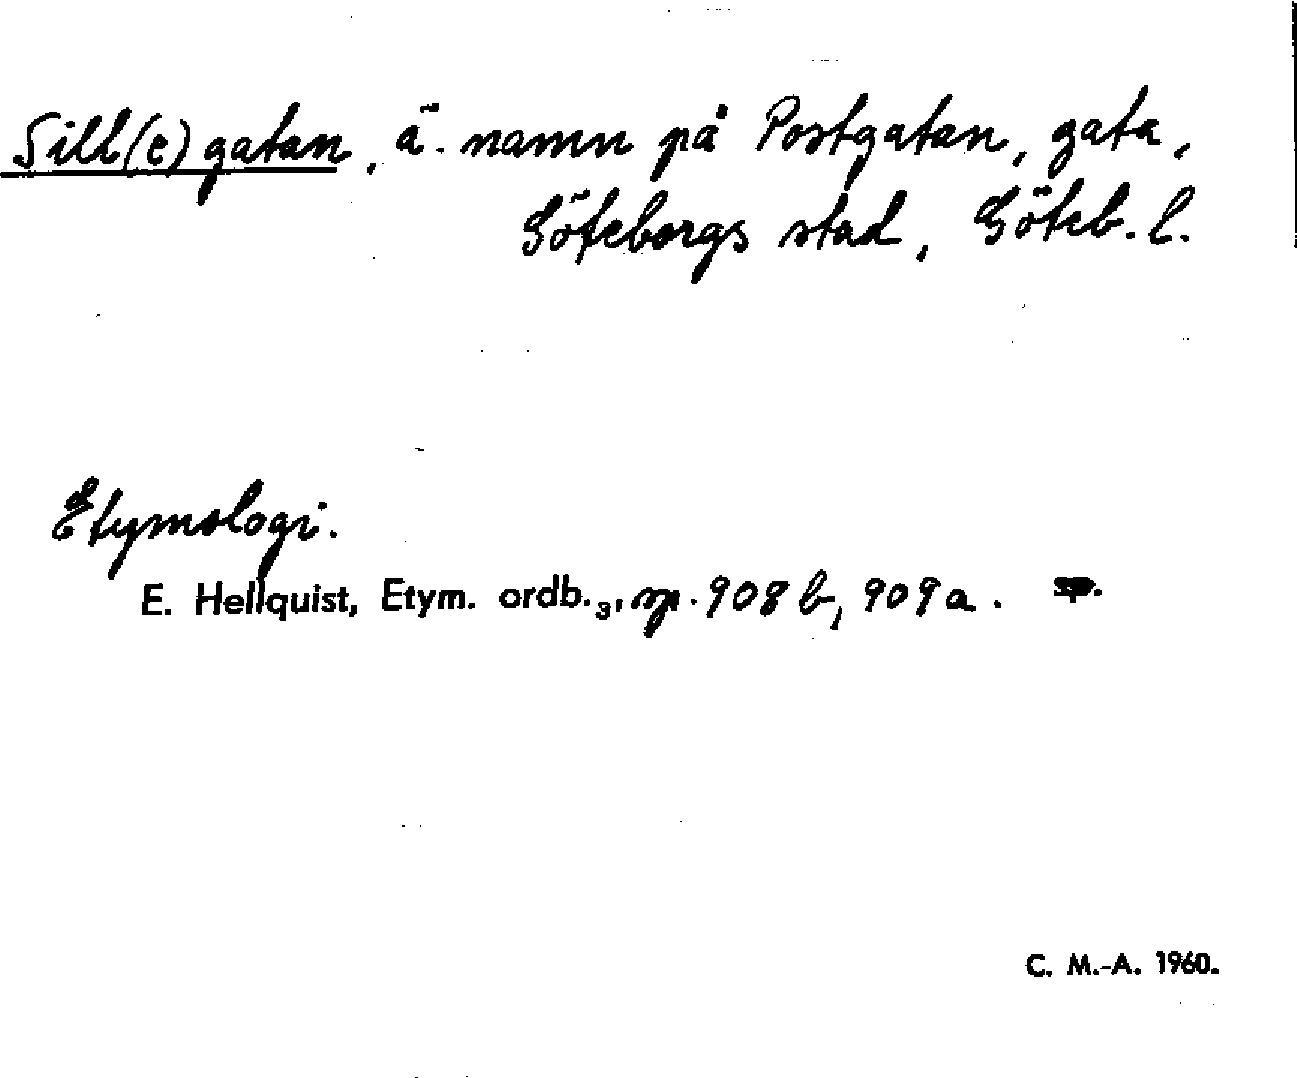 Sill(e)gatan, ä. namn på Postgatan, gata,
Göteborgs stad, Göteb. l.
Etymologi.
E. Hellquist, Etym. ordb.₃, sp. 908 b, 909 a.
C. M.-A. 1960.